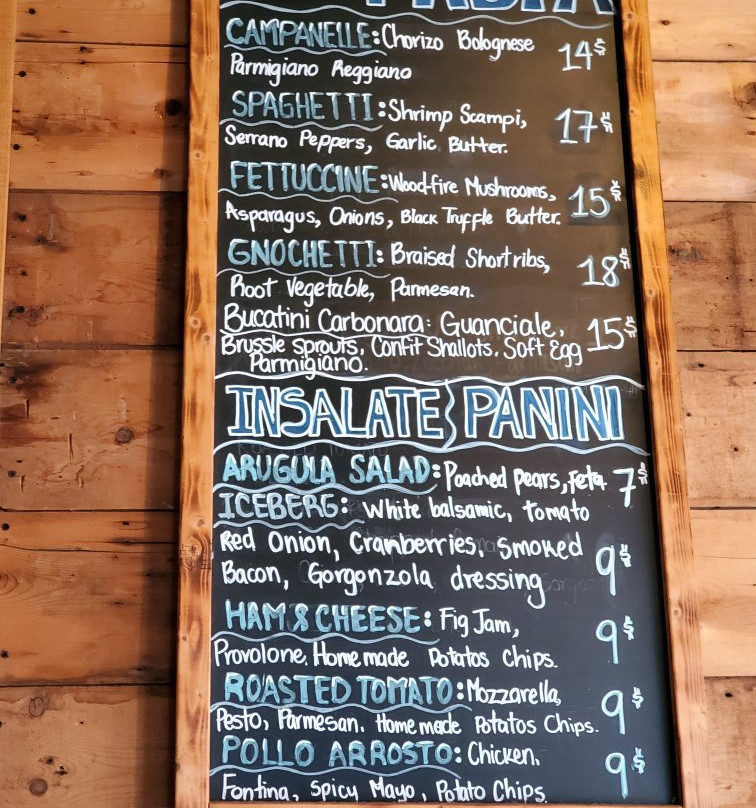 PASTA
CAMPANELLE: Chorizo Bolognese 14$
Parmigiano Reggiano
SPAGHETTI: Shrimp Scampi, 17$
Serrano Peppers, Garlic Butter.
FETTUCCINE: Woodfire Mushrooms, 15$
Asparagus, Onions, Black Truffle Butter.
GNOCHETTI: Braised Shortribs, 18$
Root Vegetable, Parmesan.
Bucatini Carbonara: Guanciale, 15$
Brussle sprouts, Confit Shallots, Soft Egg
Parmigiano.
INSALATE PANINI
ARUGULA SALAD: Poached pears, Feta 7$
ICEBERG: White balsamic, tomato
Red Onion, Cranberries, smoked 9$
Bacon, Gorgonzola dressing
HAM & CHEESE: Fig Jam, 9$
Provolone, Homemade Potatos Chips.
ROASTED TOMATO: Mozzarella, 9$
Pesto, Parmesan. Homemade Potatos Chips.
POLLO ARROSTO: Chicken, 9$
Fontina, Spicy Mayo, Potato Chips